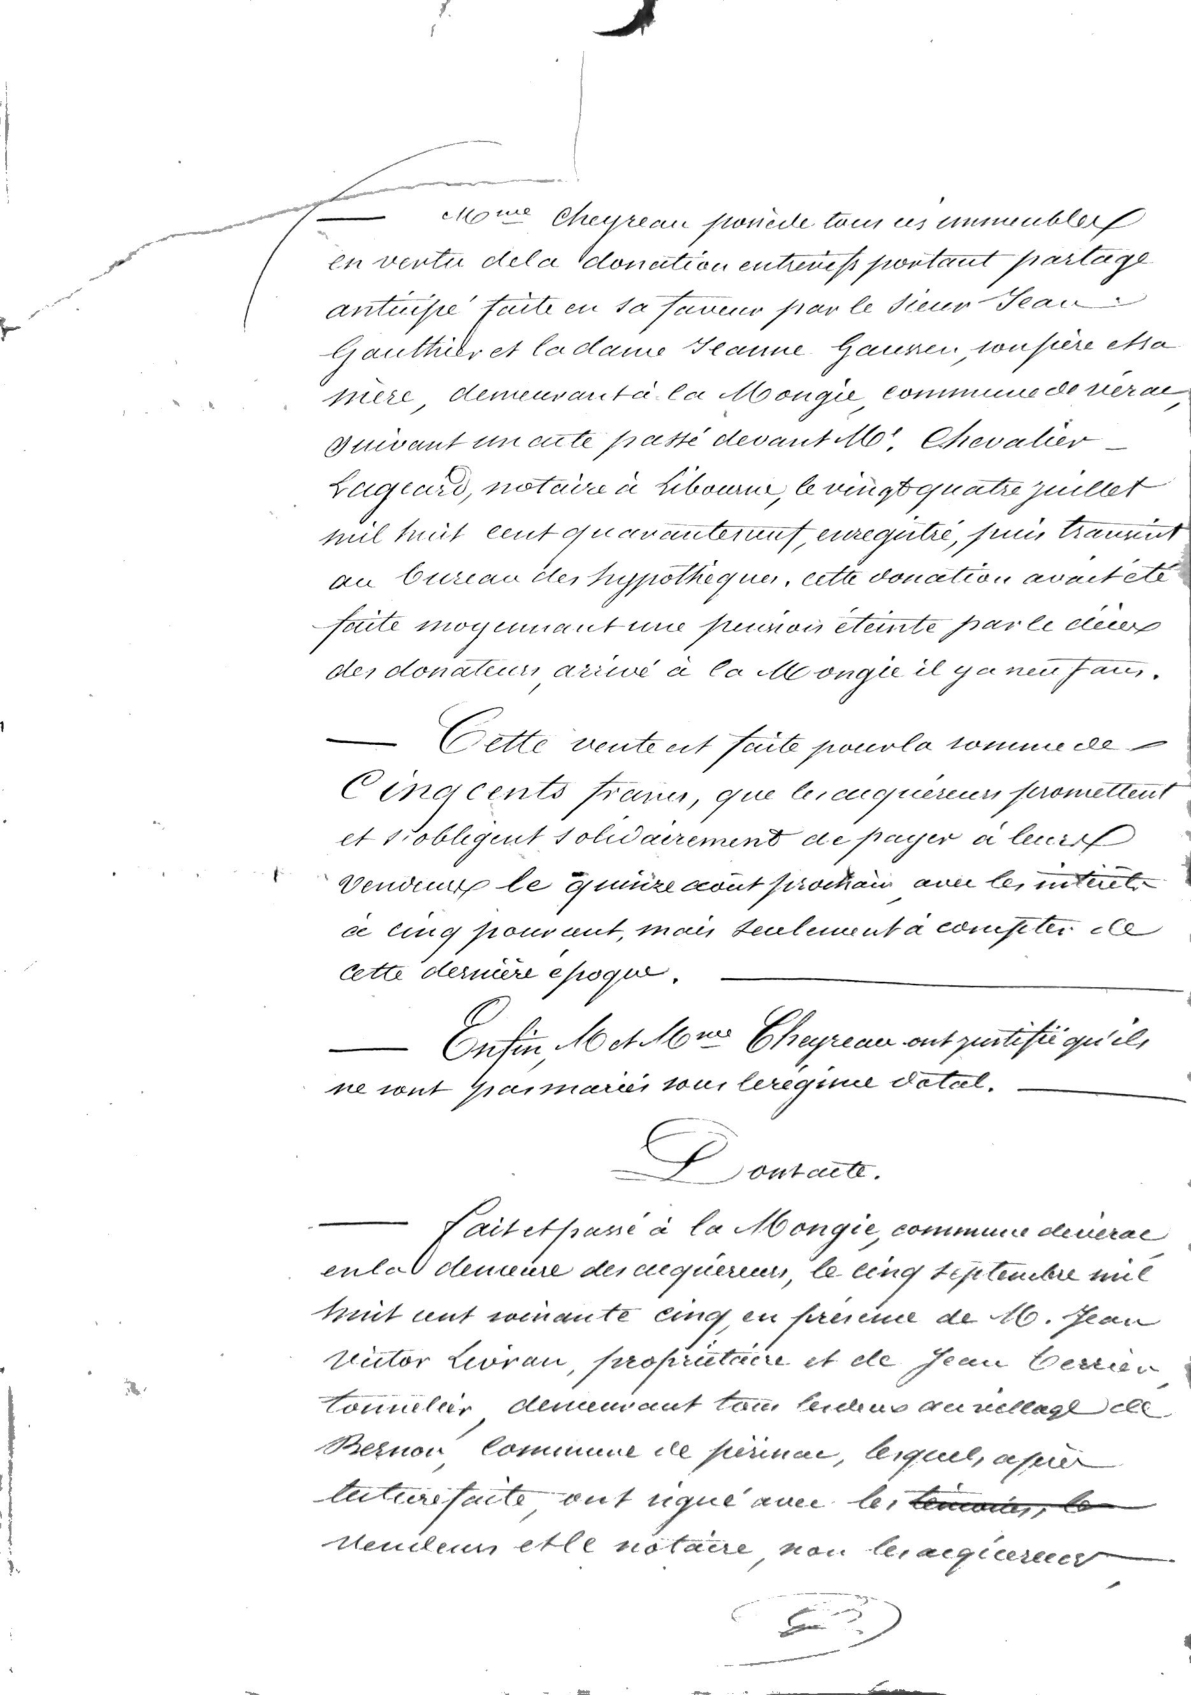 — Mme Cheyreau possède tous ces immeubles
en vertu de la donation entrevifs portant partage
anticipé faite en sa faveur par le sieur Jean
Gauthier et la dame Jeanne Gaussen, son père et sa
mère, demeurant à la Mongie, commune de vérac,
suivant un acte passé devant Me. Chevalier
Lageard, notaire à Libourne, le vingt quatre juillet
mil huit cent quarante neuf, enregistré, puis transcrit
au bureau des hypothèques. cette donation avait été
faite moyennant une pension éteinte par le décès
des donateurs, arrivé à la Mongie il y a neuf ans.
— Cette vente est faite pour la somme de
Cinq cents francs, que les acquéreurs promettent
et s'obligent solidairement de payer à leurs
vendeurs le quinze août prochain, avec les intérêts
à cinq pour cent, mais seulement à compter de
cette dernière époque. —
— Enfin, M et Mme Cheyreau ont justifié qu'ils
ne sont pas mariés sous le régime dotal. —
Dont acte.
— fait et passé à la Mongie, commune de vérac,
en la demeure des acquéreurs, le cinq septembre mil
huit cent soixante cinq, en présence de M. Jean
Victor Livran, propriétaire et de Jean Berrier,
tonnelier, demeurant tous les deux au village de
Bernon, Commune de périssac, lesquels, après
lecture faite, ont signé avec les témoins, le
vendeurs et le notaire, non les acquéreurs —